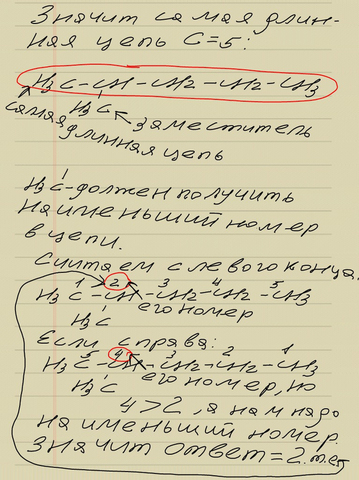 Значит самая длин-
ная цепь C=5:
H3C-CH-CH2-CH2-CH3
самая H3C заместитель
длинная цепь
H3C-должен получить
наименьший номер
в цепи.
Считаем с левого конца.
1 2 3 4 5
H3C-CH-CH2-CH2-CH3
H3C его номер
Если справа:
5 4 3 2 1
H3C-CH-CH2-CH2-CH3
H3C его номер, но
4>2, а нам надо
наименьший номер.
Значит ответ=2.